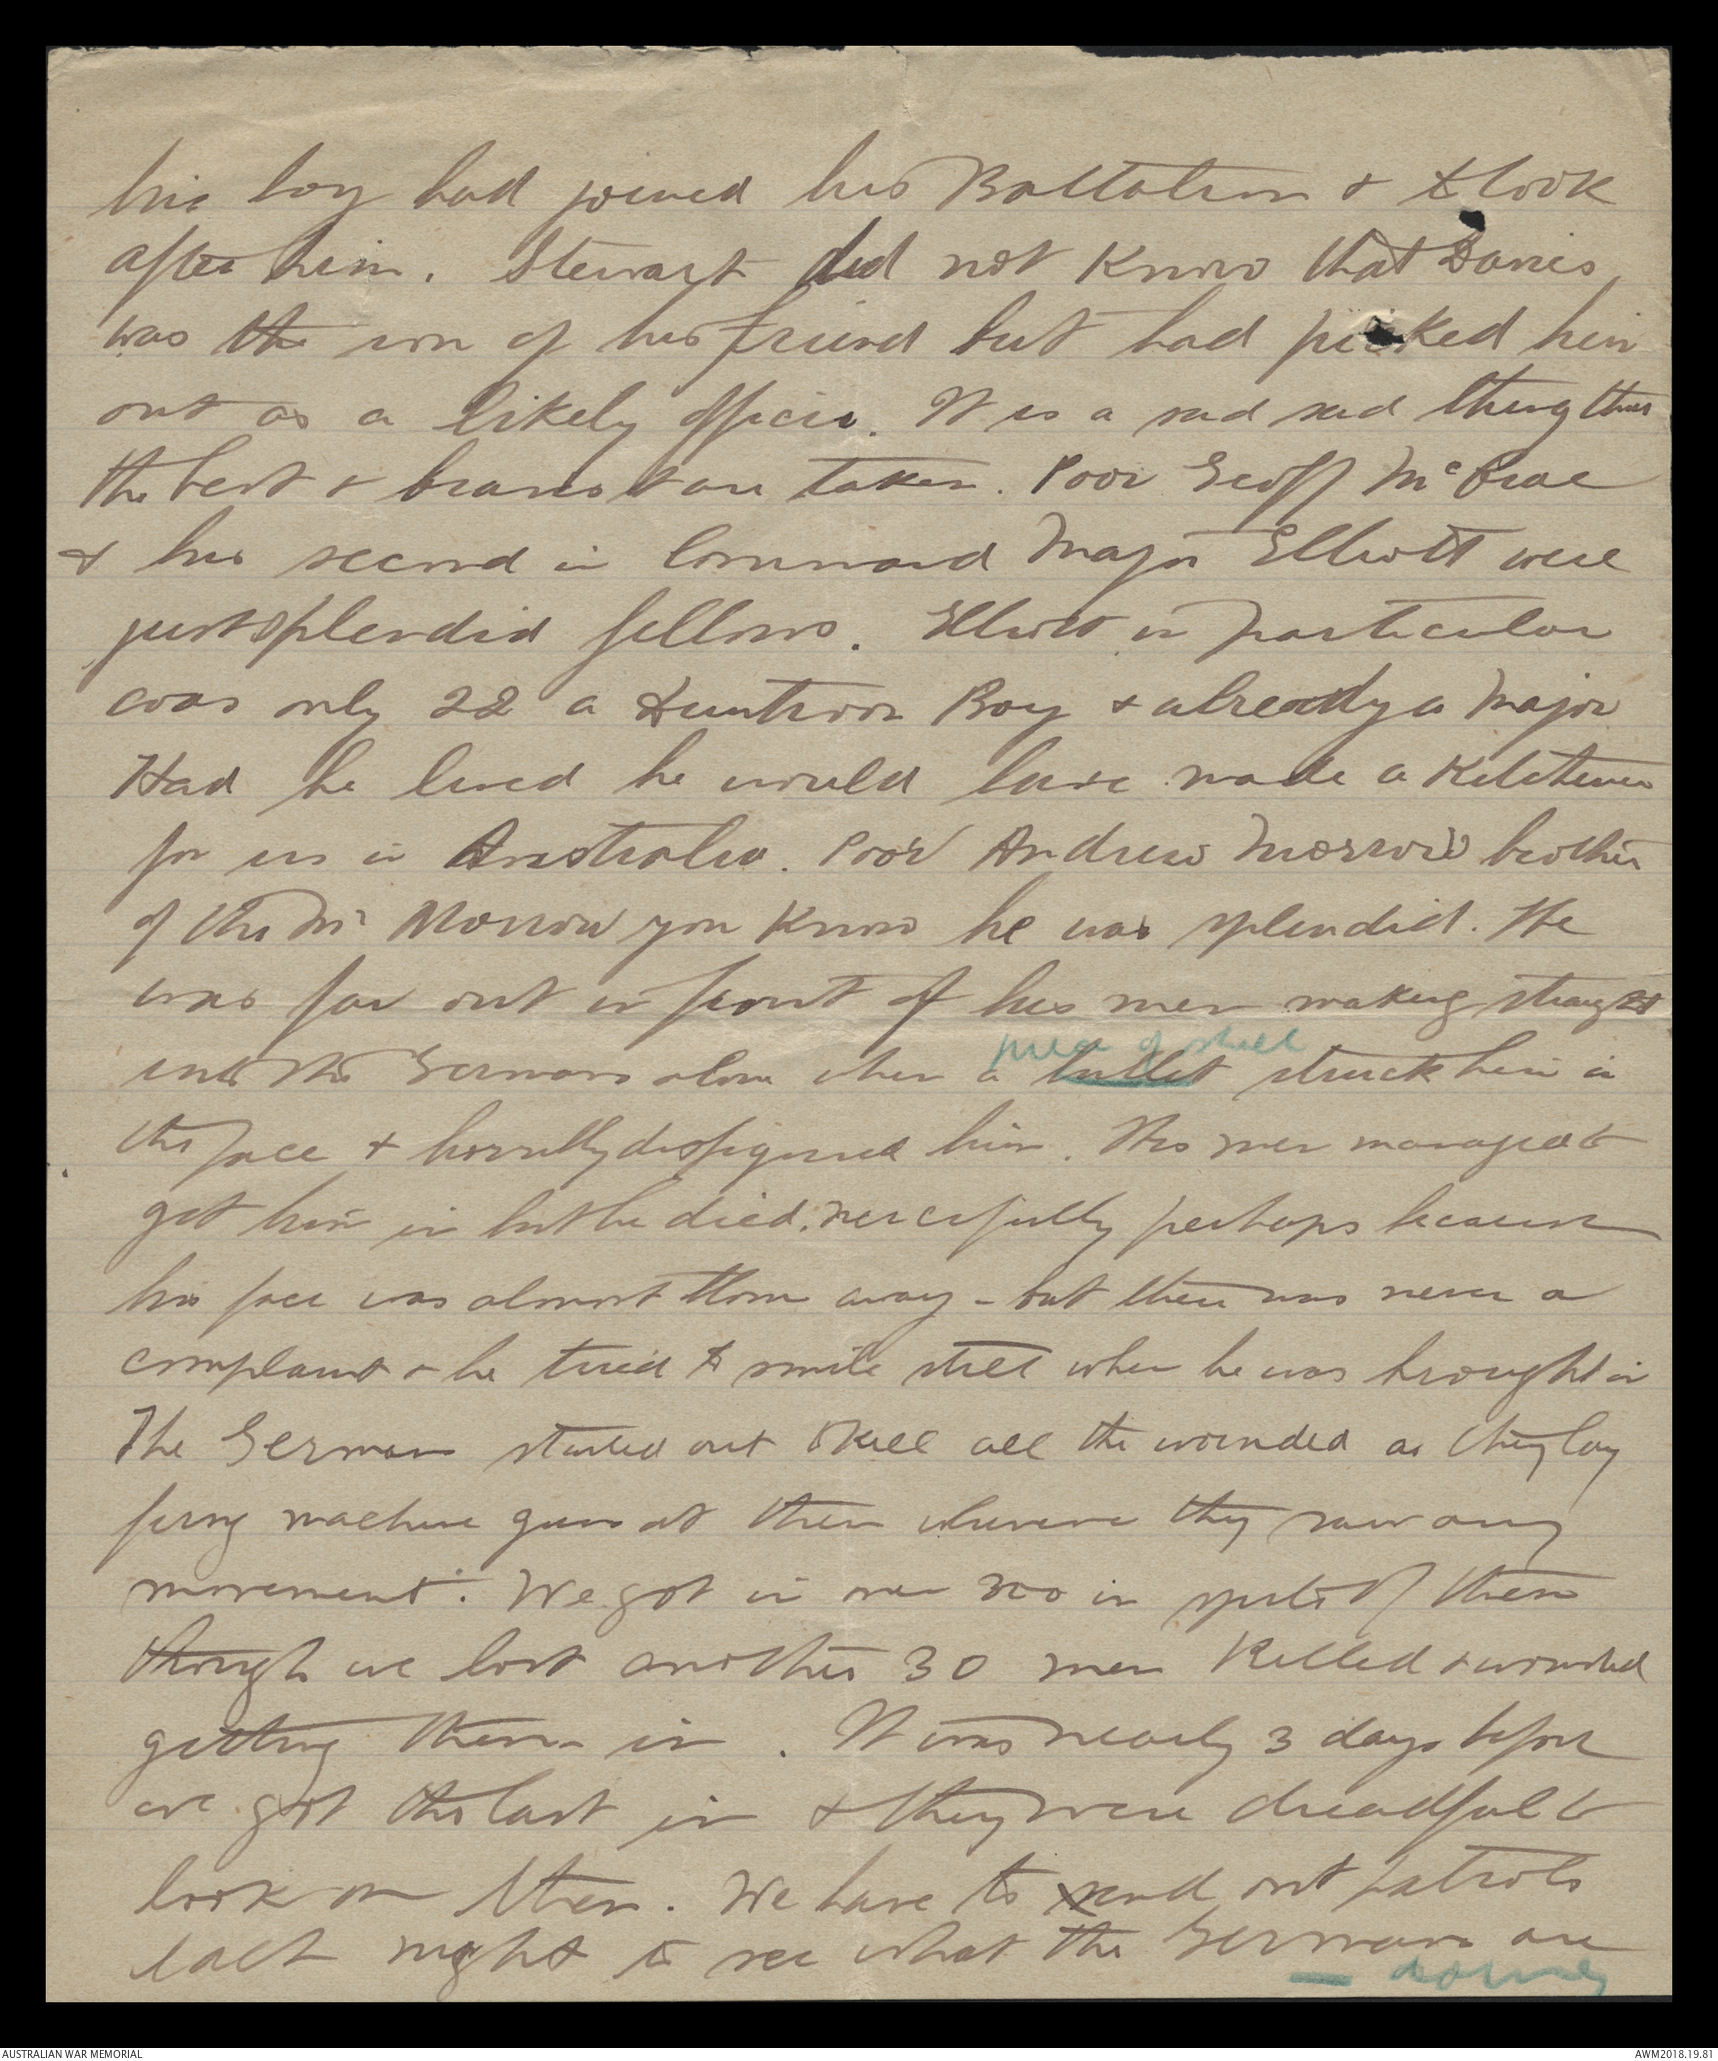 his boy had joined his Battalion & to look
after him. Stewart did not know that Davies
was the son of his friend but had picked him
out as a likely officer. It is a sad sad thing that
the best & bravest are taken. Poor Geoff McCrae
& his second in Command Major Elliott were
just splendid fellows. Elliott in particular
was only 22 a Duntroon Boy & already a Major
Had he lived he would have made a Kitchener
for us in Australia. Poor Andrew Morrow brother
of the Mr Morrow you know he was splendid. He
was far out in front of his men making straight
into the Germans alone when a bullet struck him in
piece of shell
the face & horribly disfigured him. His men managed to
get him in but he died, mercifully perhaps because
his face was almost torn away - but there was never a
complaint & he tried to smile still when he was brought in
The Germans started out to kill all the wounded as they lay
firing machine guns at them wherever they saw any
movement. We got in over 300 in spite of them
though we lost another 30 men killed & wounded
getting them in. It was nearly 3 days before
we got the last in & they were dreadful to
look on then. We have to send out patrols
each night to see what the Germans are
— doing
AUSTRALIAN WAR MEMORIAL
AWM2018.19.81